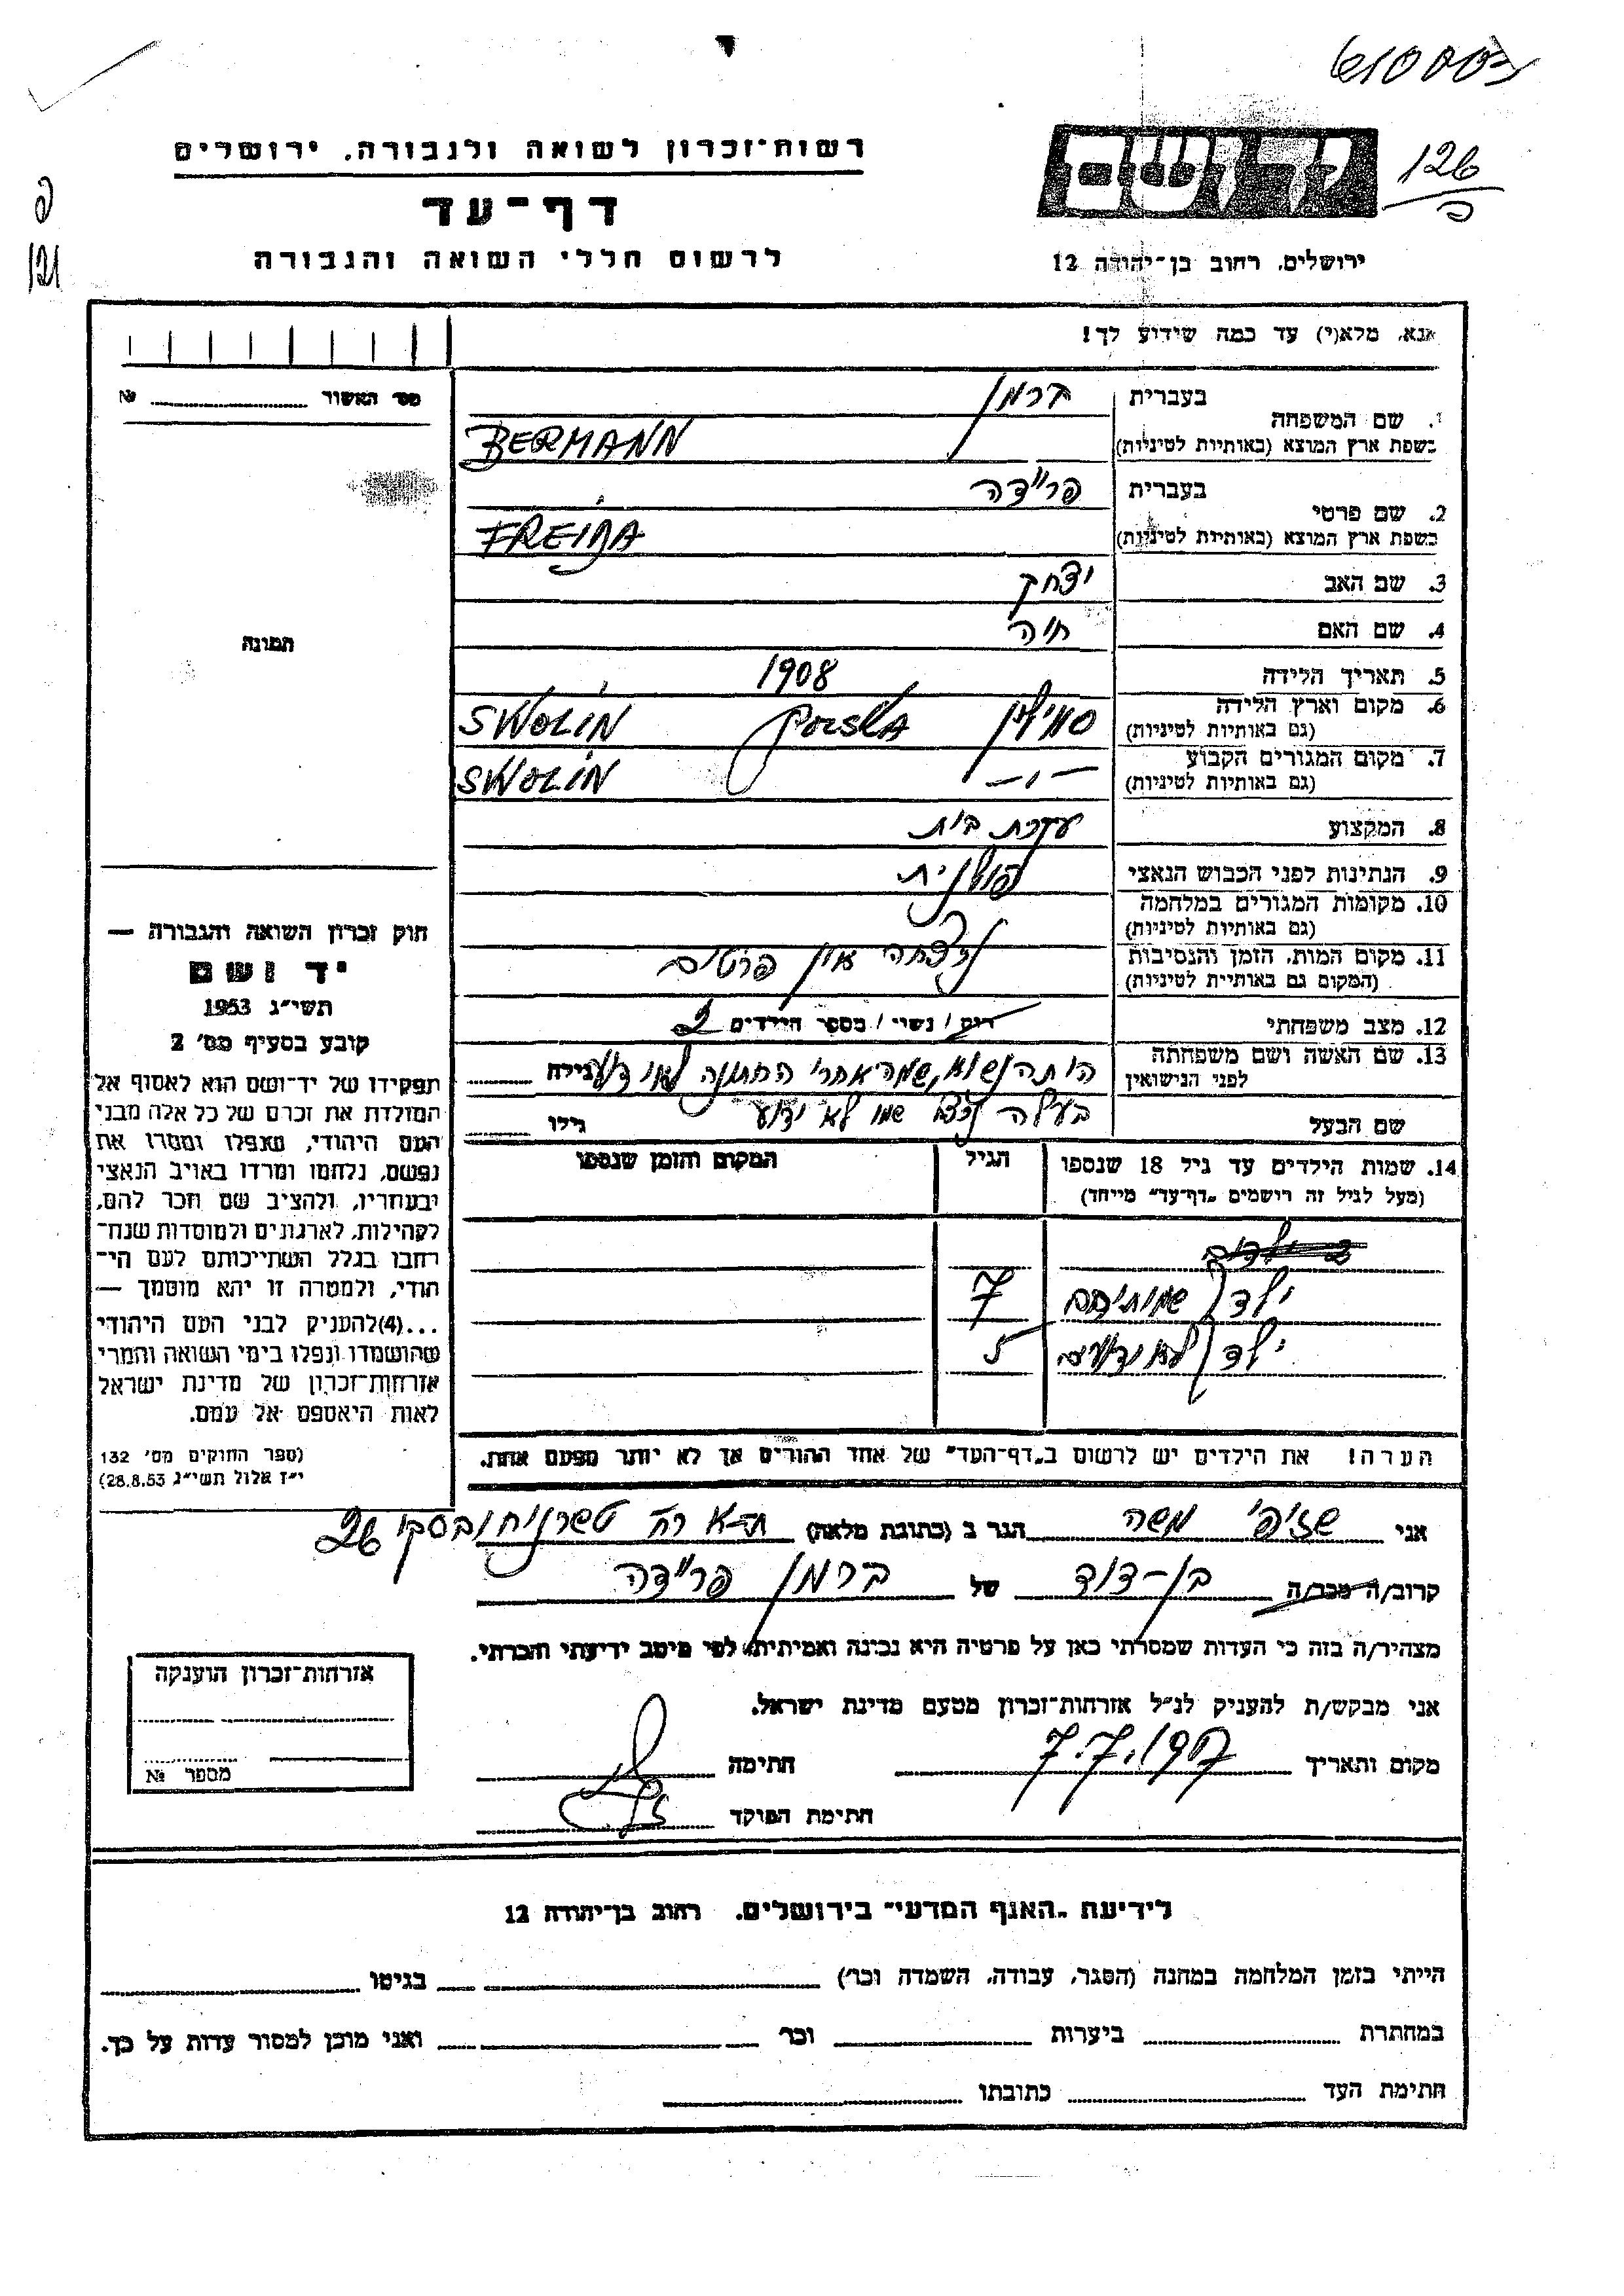 610003
126
כ
רשות־זכרון לשואה ולגבורה, ירושלים
דף־עד
לרשום חללי השואה והגבורה
יד ושם
ירושלים, רחוב בן־יהודה 12
פ
121
אנא, מלא(י) עד כמה שידוע לך!
מס׳ האשור № 
1. שם המשפחה בעברית ברמן
בשפת ארץ המוצא (באותיות לטיניות) BERMANN
2. שם פרטי בעברית פריידה
בשפת ארץ המוצא (באותיות לטיניות) FREIDA
3. שם האב יצחק
4. שם האם חיה
תמונה
5. תאריך הלידה 1908
6. מקום וארץ הלידה (גם באותיות לטיניות) SWOLIN Polska
7. מקום המגורים הקבוע (גם באותיות לטיניות) -"- SWOLIN
8. המקצוע עקרת בית
9. הנתינות לפני הכבוש הנאצי פולנית
10. מקומות המגורים במלחמה (גם באותיות לטיניות)
11. מקום המות, הזמן והנסיבות (המקום גם באותיות לטיניות) נרצחה אין פרטים
12. מצב משפחתי רוק / נשוי / מספר הילדים 2
13. שם האשה ושם משפחתה לפני הנישואין היתה נשואה, שמה אחרי החתונה לא ידוע גילה
שם הבעל בעלה שמו לא ידוע גילו
14. שמות הילדים עד גיל 18 שנספו (מעל לגיל זה רושמים „דף־עד״ מיוחד) הגיל המקום והזמן שנספו
2 ילדים
ילד שמותיהם 7
ילד לא ידועים 5
הערה! את הילדים יש לרשום ב„דף־העד״ של אחד ההורים אך לא יותר מפעם אחת.
חוק זכרון השואה והגבורה —
יד ושם
תשי״ג 1953
קובע בסעיף מס׳ 2
תפקידו של יד־ושם הוא לאסוף אל
המולדת את זכרם של כל אלה מבני
העם היהודי, שנפלו ומסרו את
נפשם, נלחמו ומרדו באויב הנאצי
ובעוזריו, ולהציב שם וזכר להם,
לקהילות, לארגונים ולמוסדות שנח־
רבו בגלל השתייכותם לעם הי־
הודי, ולמטרה זו יהא מוסמך —
...(4) להעניק לבני העם היהודי
שהושמדו ונפלו בימי השואה והמרי
אזרחות־זכרון של מדינת ישראל
לאות היאספם אל עמם.
(ספר החוקים מס׳ 132
י״ז אלול תשי״ג 28.8.53)
אני משה הגר ב (כתובת מלאה) ת-א רח׳ טשרניחובסקי 26
קרוב/ה מכר/ה בן-דוד של ברמן פריידה
מצהיר/ה בזה כי העדות שמסרתי כאן על פרטיה היא נכונה ואמיתית, לפי מיטב ידיעתי והכרתי.
אני מבקש/ת להעניק לנ״ל אזרחות־זכרון מטעם מדינת ישראל.
מקום ותאריך 7.7.1957 חתימה
חתימת הפוקד
אזרחות־זכרון הוענקה
מספר №
לידיעת „האגף המדעי״ בירושלים, רחוב בן־יהודה 12
הייתי בזמן המלחמה במחנה (הסגר, עבודה, השמדה וכו׳) בגיטו
במחתרת ביערות וכו׳ ואני מוכן למסור עדות על כך.
חתימת העד כתובתו